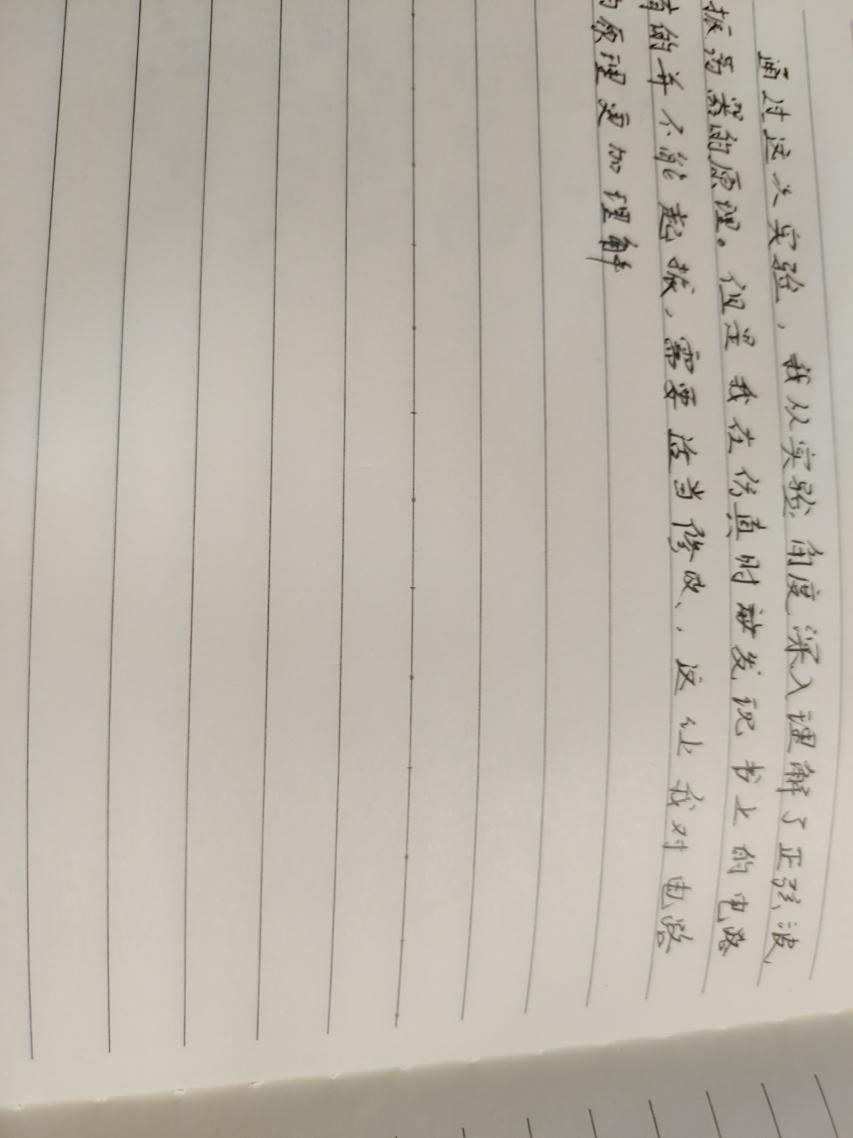 通过这次实验，我从实验角度深入理解了正弦波
振荡器的原理。但是我在仿真时发现书上的电路
有的并不能起振，需要适当修改，这让我对电路
的原理更加理解